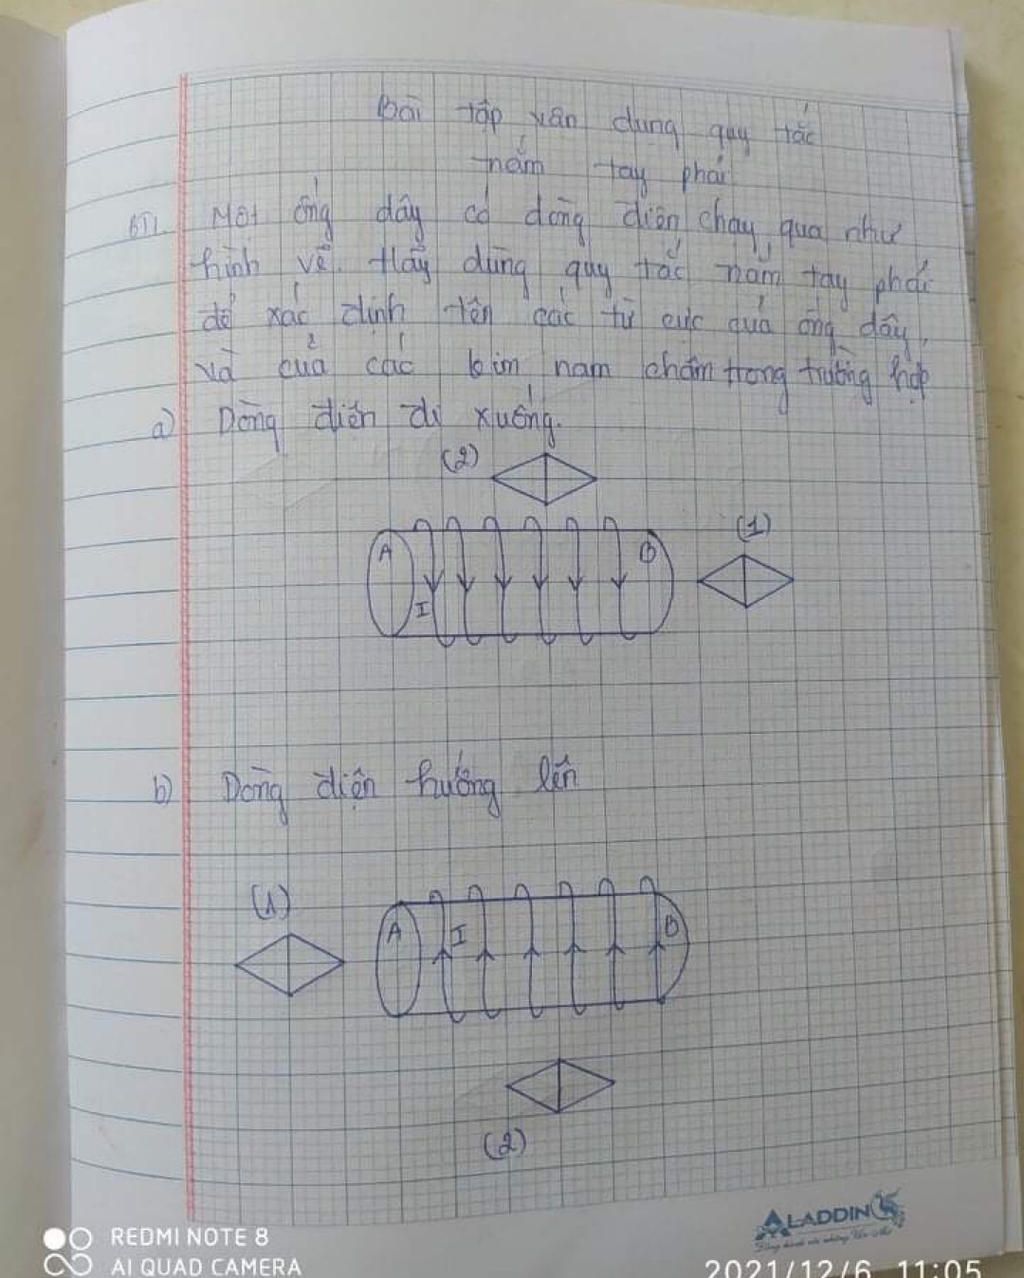 Bài tập vận dụng quy tắc
nắm tay phải
BT1. Một ống dây có dòng điện chạy qua như
hình vẽ. Hãy dùng quy tắc nắm tay phải
để xác định tên các từ cực của ống dây,
và của các kim nam châm trong trường hợp
a) Dòng điện đi xuống.
(2)
(1)
A
B
I
b) Dòng điện hướng lên
(1)
A
I
B
(2)
ALADDIN
REDMI NOTE 8
AI QUAD CAMERA
2021/12/6 11:05